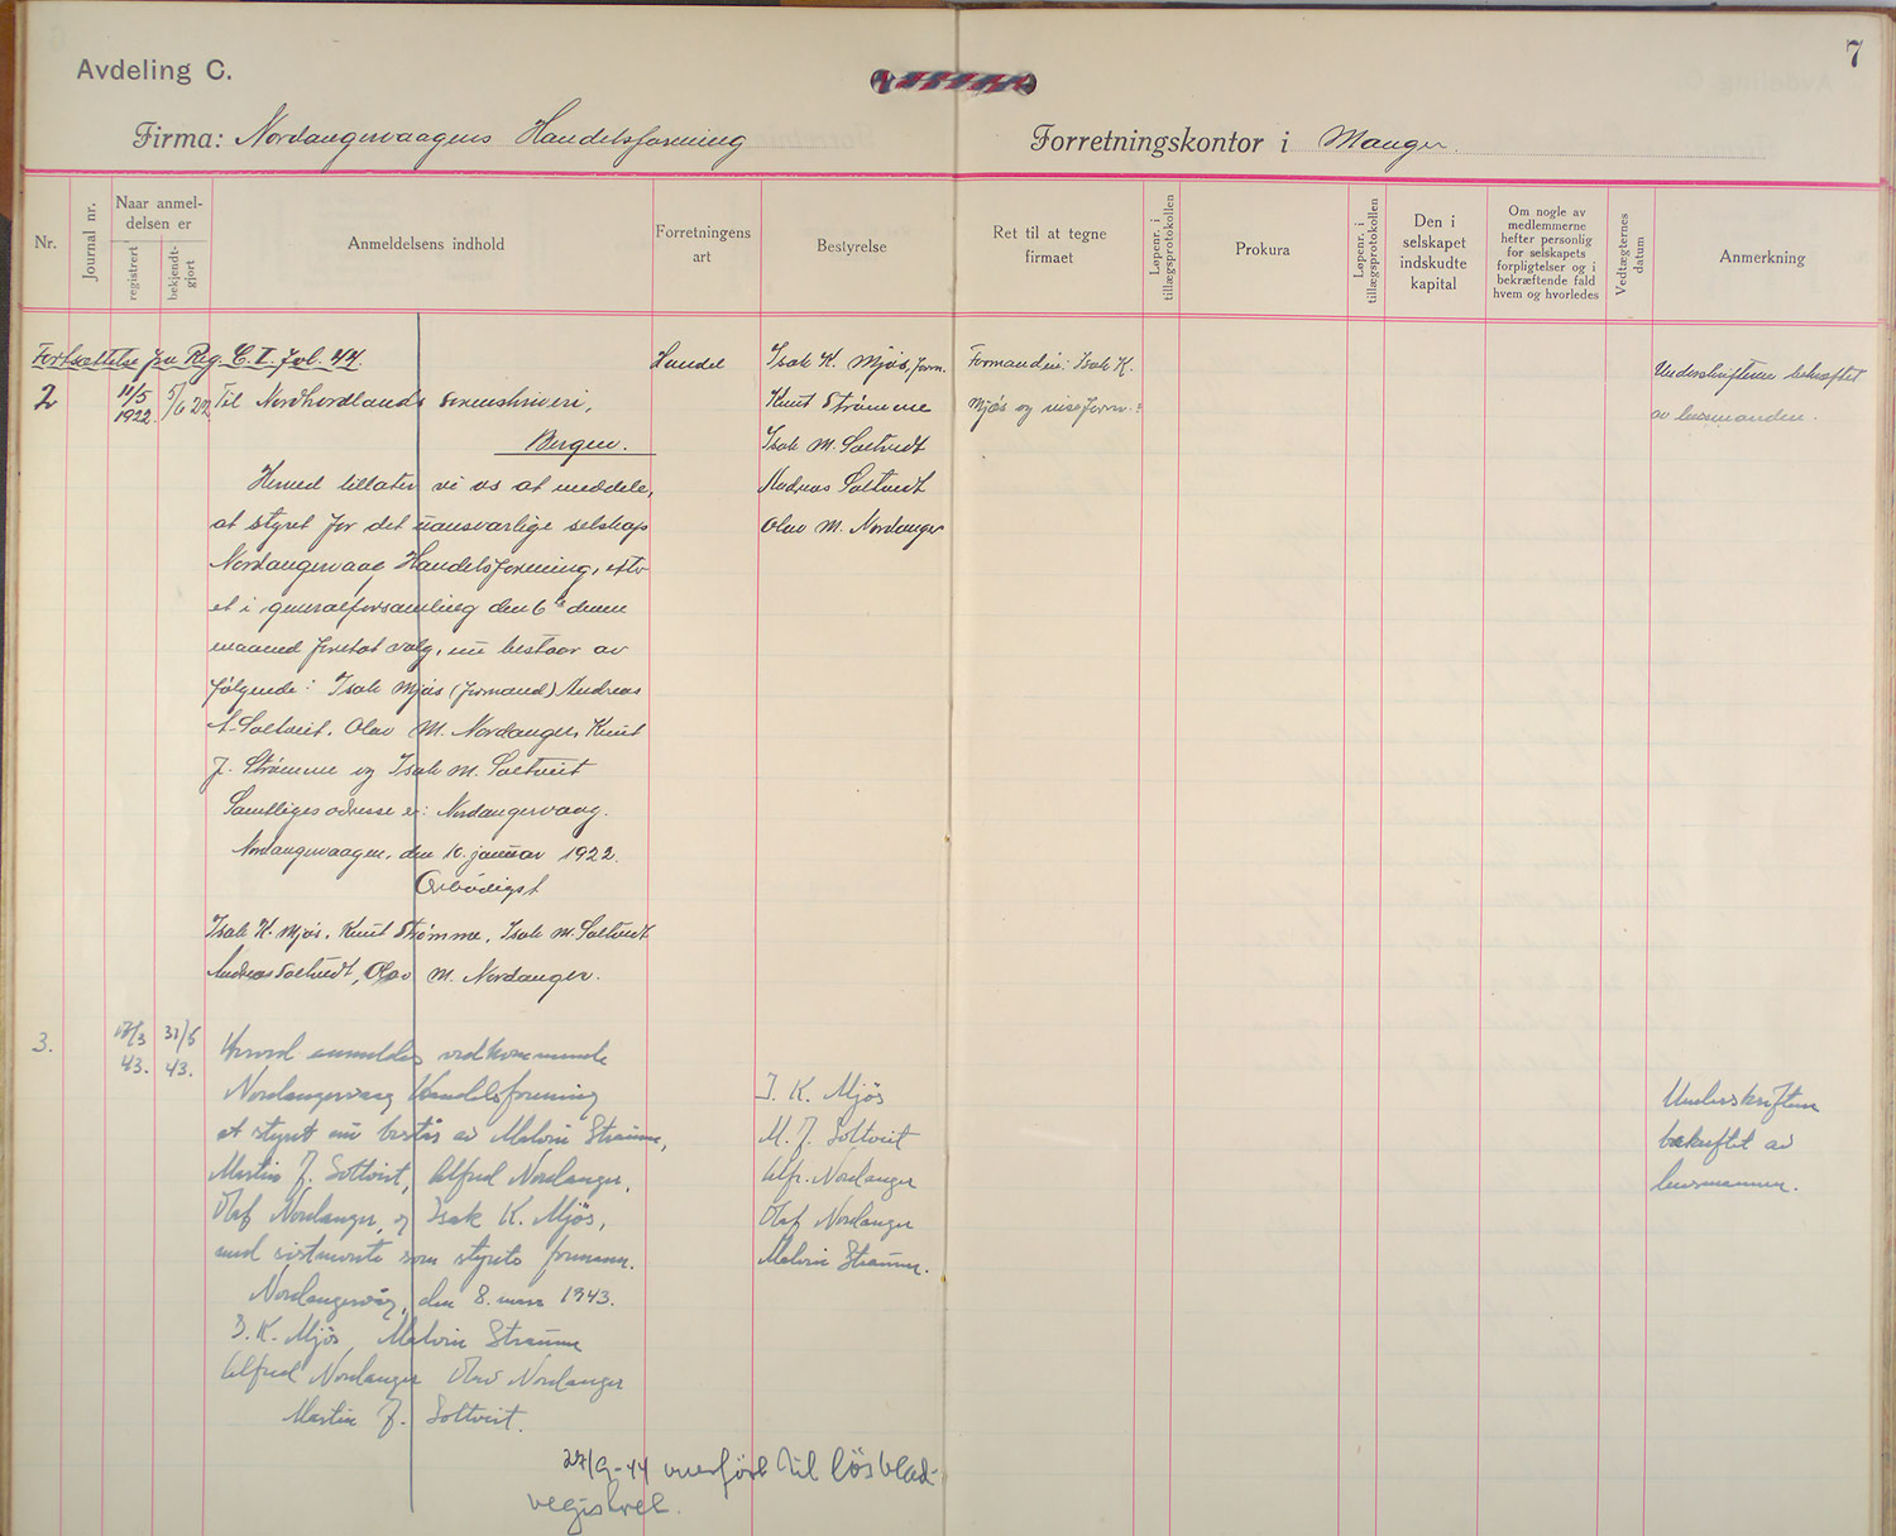 7
Avdeling C.
Firma: Nordangervaagens Handelsforening
Forretningskontor i Manger.
Nr.
Journal nr.
Naar anmel-
delsen er
registrert
bekjendt-
gjort
Anmeldelsens indhold
Forretningens
art
Bestyrelse
Ret til at tegne
firmaet
Løpenr. i
tillægsprotokollen
Prokura
Løpenr. i
tillægsprotokollen
Den i
selskapet
indskudte
kapital
Om nogle av
medlemmerne
hefter personlig
for selskapets
forpligtelser og i
bekræftende fald
hvem og hvorledes
Vedtægternes
datum
Anmerkning
Fortsættelse fra Reg. C. I. fol. 44.
2
11/5
1922.
5/6 22
Til Nordhordlands sorenskriveri,
Bergen.
Herved tillater vi os at meddele,
at styret for det uansvarlige selskap
Nordangervaag Handelsforening, efter
et i generalforsamling den 6te denne
maaned foretat valg, nu bestaar av
følgende: Isak Mjøs (formand) Andreas
A. Soltveit, Olav M. Nordanger, Knut
J. Strømme og Isak M. Soltveit
Samtliges adresse er: Nordangervaag.
Nordangervaagen, den 10. januar 1922.
Ærbødigst
Isak K. Mjøs, Knut Strømme, Isak M. Soltvedt
Andreas Soltvedt, Olav M. Nordanger.
Handel
Isak K. Mjøs, form.
Knut Strømme
Isak M. Soltvedt
Andreas Soltvedt
Olav M. Nordanger
Formanden: Isak K.
Mjøs og viseform.:
Underskrifterne bekræftet
av lensmanden.
3.
17/3
43.
31/5
43.
Herved anmeldes vedkommende
Nordangervaag Handelsforening
at styret nu består av Malvin Straume,
Martin J. Soltveit, Alfred Nordanger,
Olaf Nordanger, og Isak K. Mjös,
med sistnevnte som styrets formann.
Nordangervåg, den 8. mars 1943.
I. K. Mjös, Malvin Straume
Alfred Nordanger Olav Nordanger
Martin J. Soltveit.
I. K. Mjös
M. J. Soltveit
Alfr. Nordanger
Olaf Nordanger
Malvin Straume.
Underskriften
bekreftet av
lensmannen.
27/9-44 overfört til lösblad-
registret.